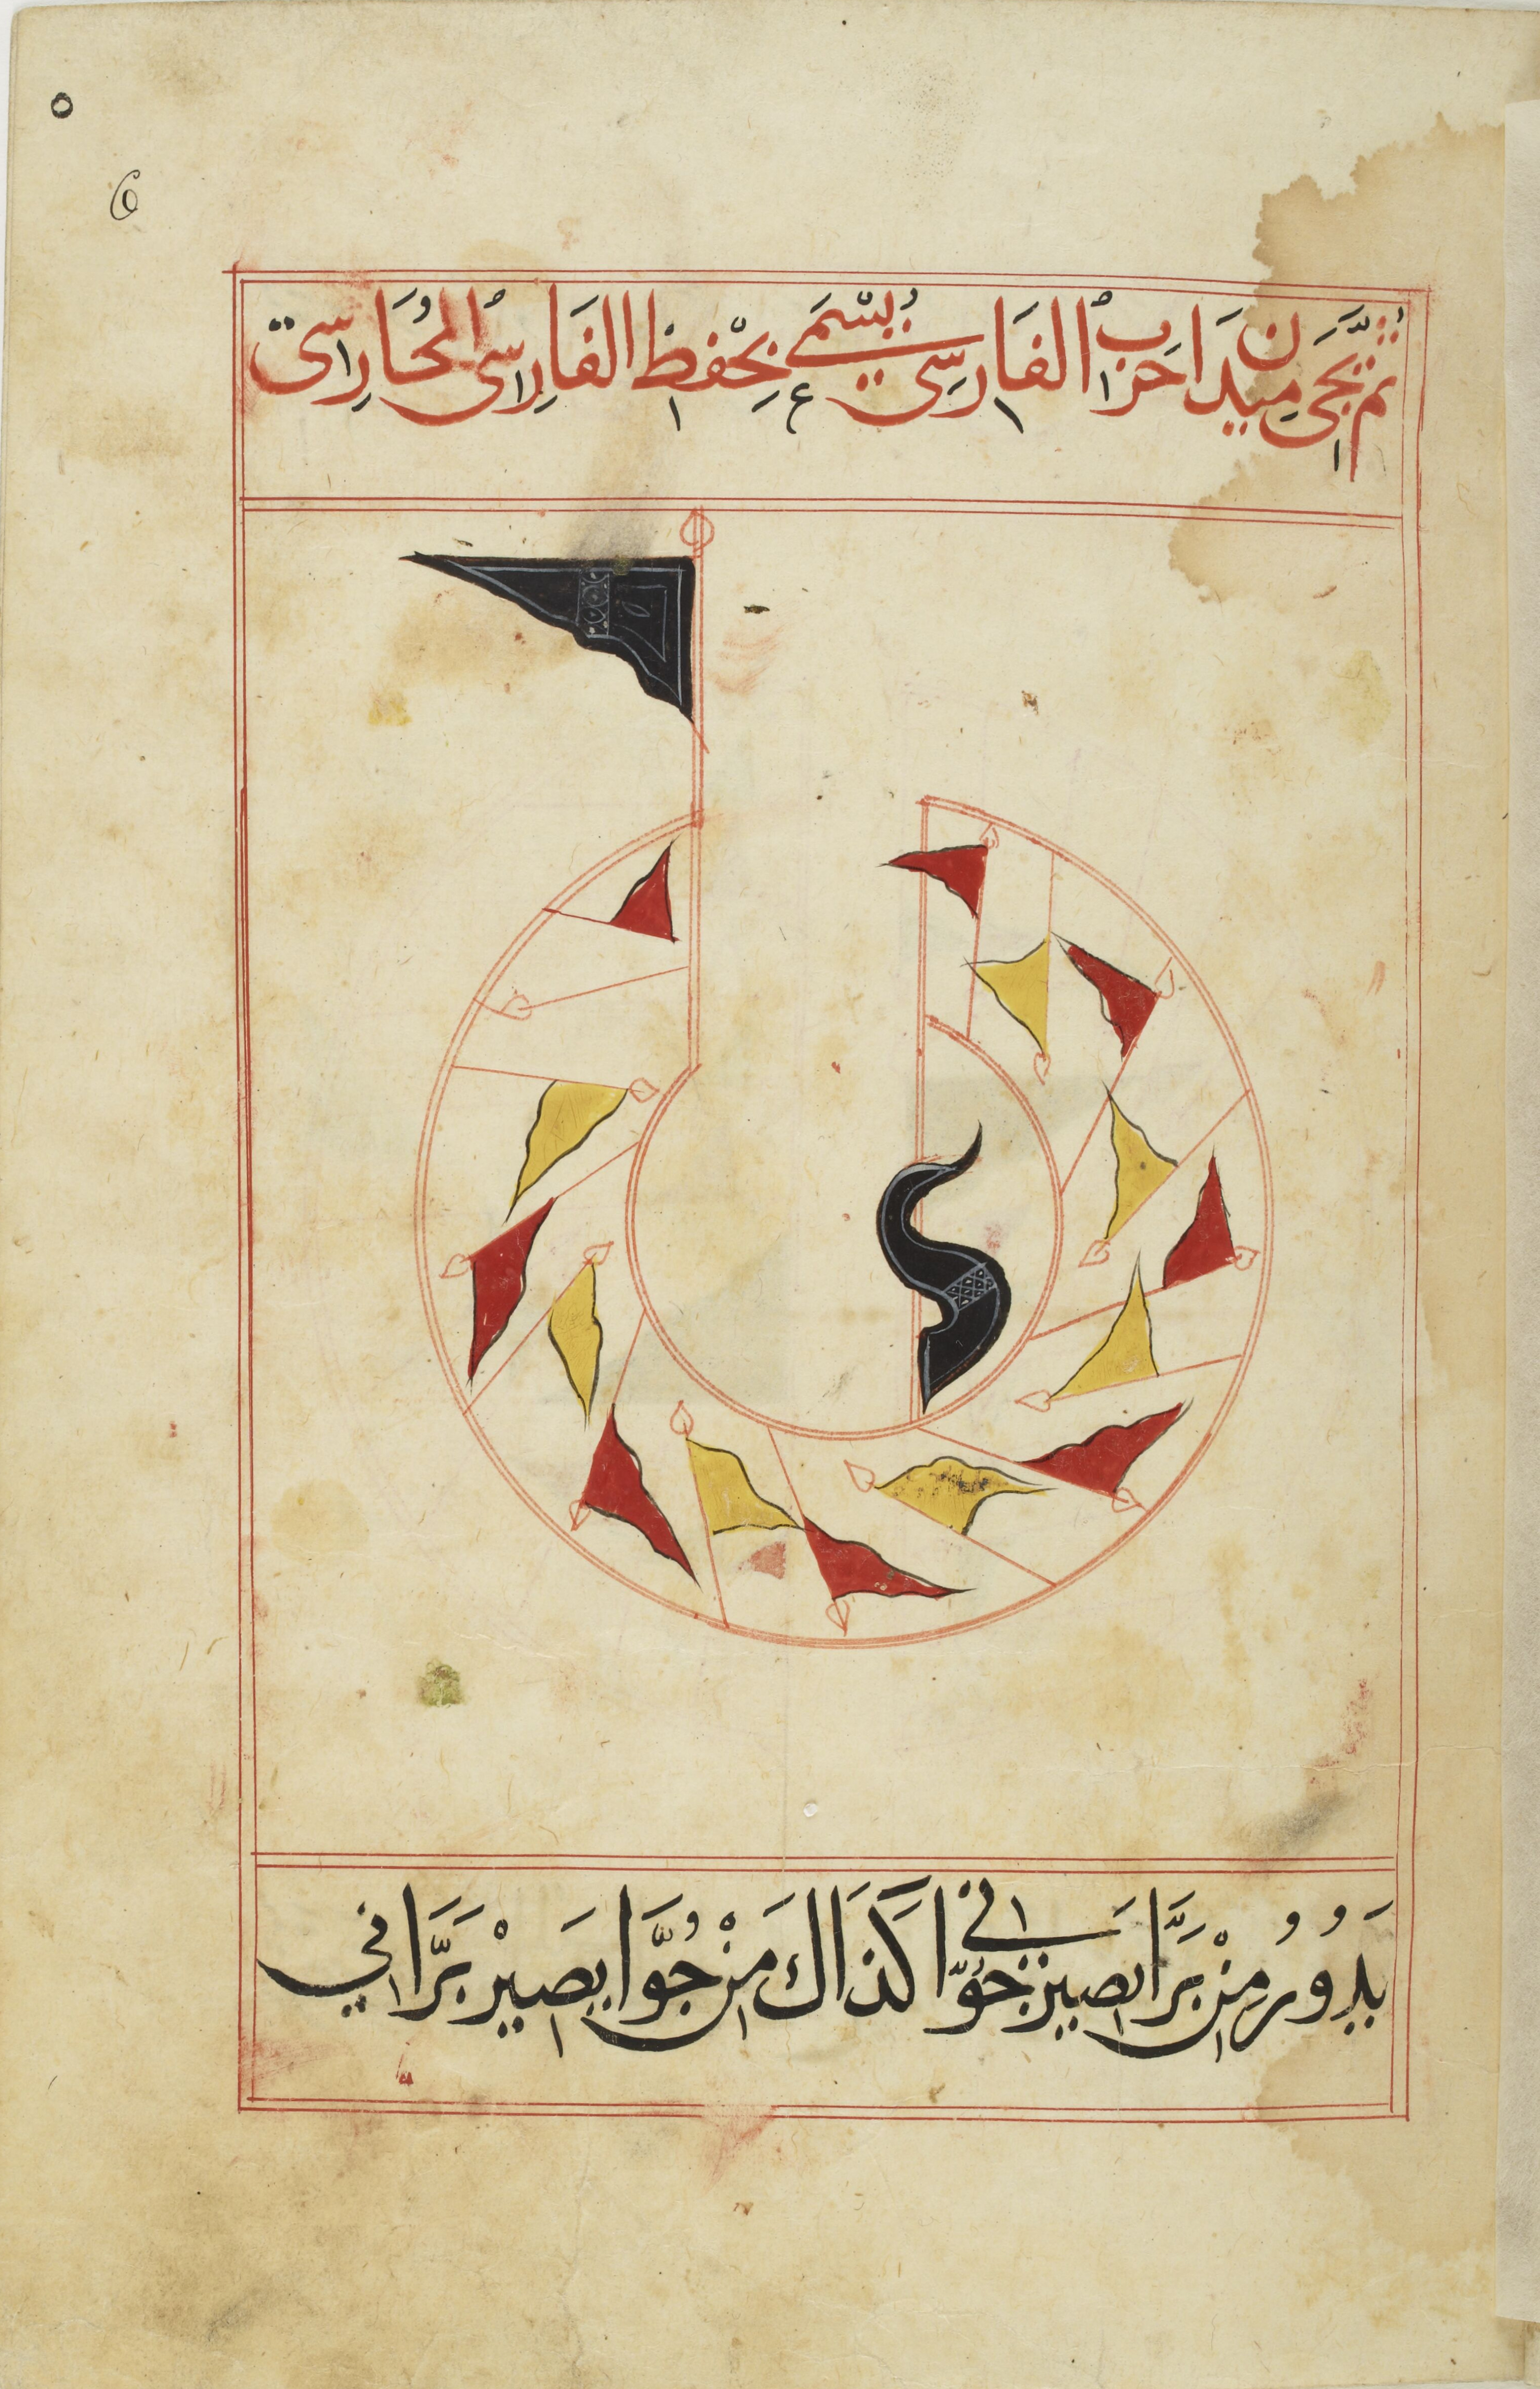 ٥
6
ثُمَّ نَجِّى مِيدَان حَرْبُ الفَارِسِى يُسْمَى بِحْفِظ الفَارِسُ المُحَارِسِى
يَدُورُ مِنْ بَرَّا يصير جُوَّانى كَذَاكَ مِنْ جُوَّا يصَيرْ بَرَّانِي